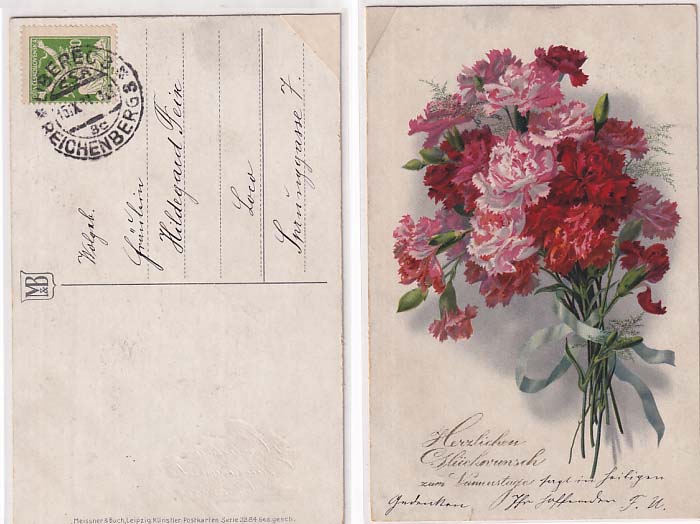 LIBEREC
REICHENBERG 3
8c
Wolgeb.
Fräulein
Hildegard Feix
Loco
Sprunggasse 7.
M&B
Meissner & Buch, Leipzig, Künstler-Postkarten Serie 2284 Ges. gesch.
Herzlichen
Glückwunsch
zum Namenstage sagt in heiligen
Gedenken Ihr hoffenden F. U.